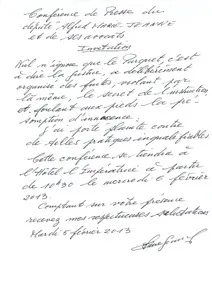 Conférence de Presse du
député Alfred MARIE-JEANNE
et de ses avocats
Invitation
Nul n'ignore que le Parquet, c'est
à dire la justice, a délibérément
organisé des fuites, violant par
là même, le secret de l'instruction
et foulant aux pieds la pré-
somption d'innocence.
J'ai porté plainte contre
de telles pratiques inqualifiables
Cette conférence se tiendra à
l'Hôtel l'Impératrice à partir
de 10h30 le mercredi 6 février
2013.
Comptant sur votre présence
recevez mes respectueuses salutations
Mardi 5 février 2013